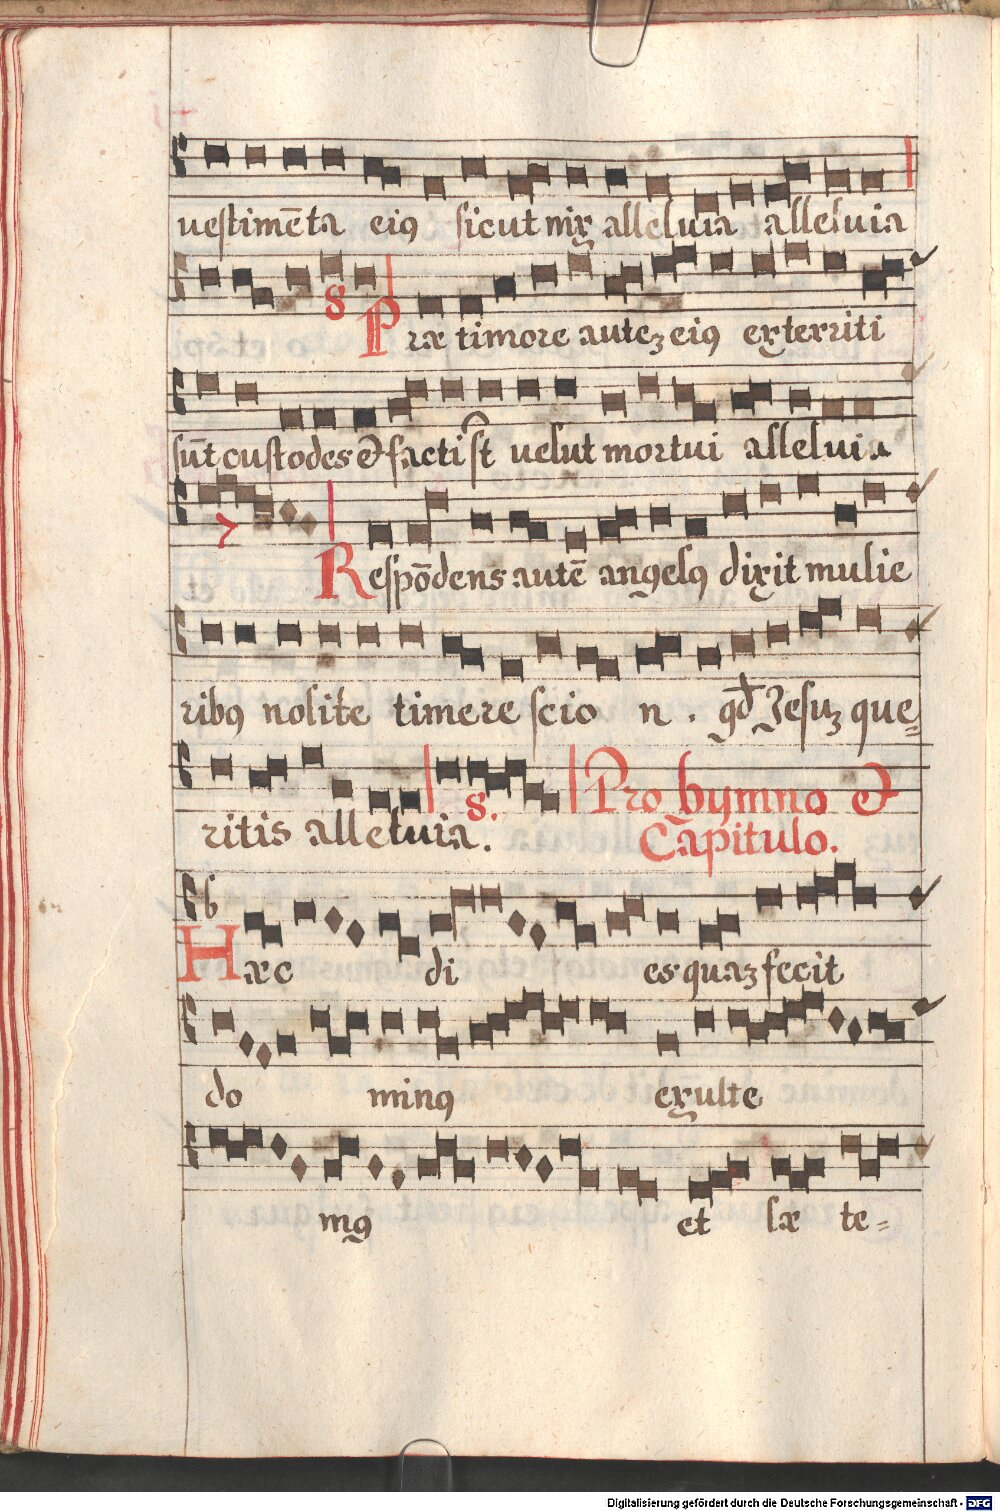 uestimēta eiꝯ sicut nix alleluia alleluia
s Præ timore autēꝫ eiꝯ exterriti
sūt custodes & facti st̄ uelut mortui alleluia
7 Respōdens autē angelꝯ dixit mulie
ribꝯ nolite timere scio n . qđ Jesuꝫ que=
ritis alleluia. s. Pro hymno &
Capitulo.
Hæc di es quaꝫ fecit
do minꝯ exulte
mꝯ et læ te=
Digitalisierung gefördert durch die Deutsche Forschungsgemeinschaft - DFG